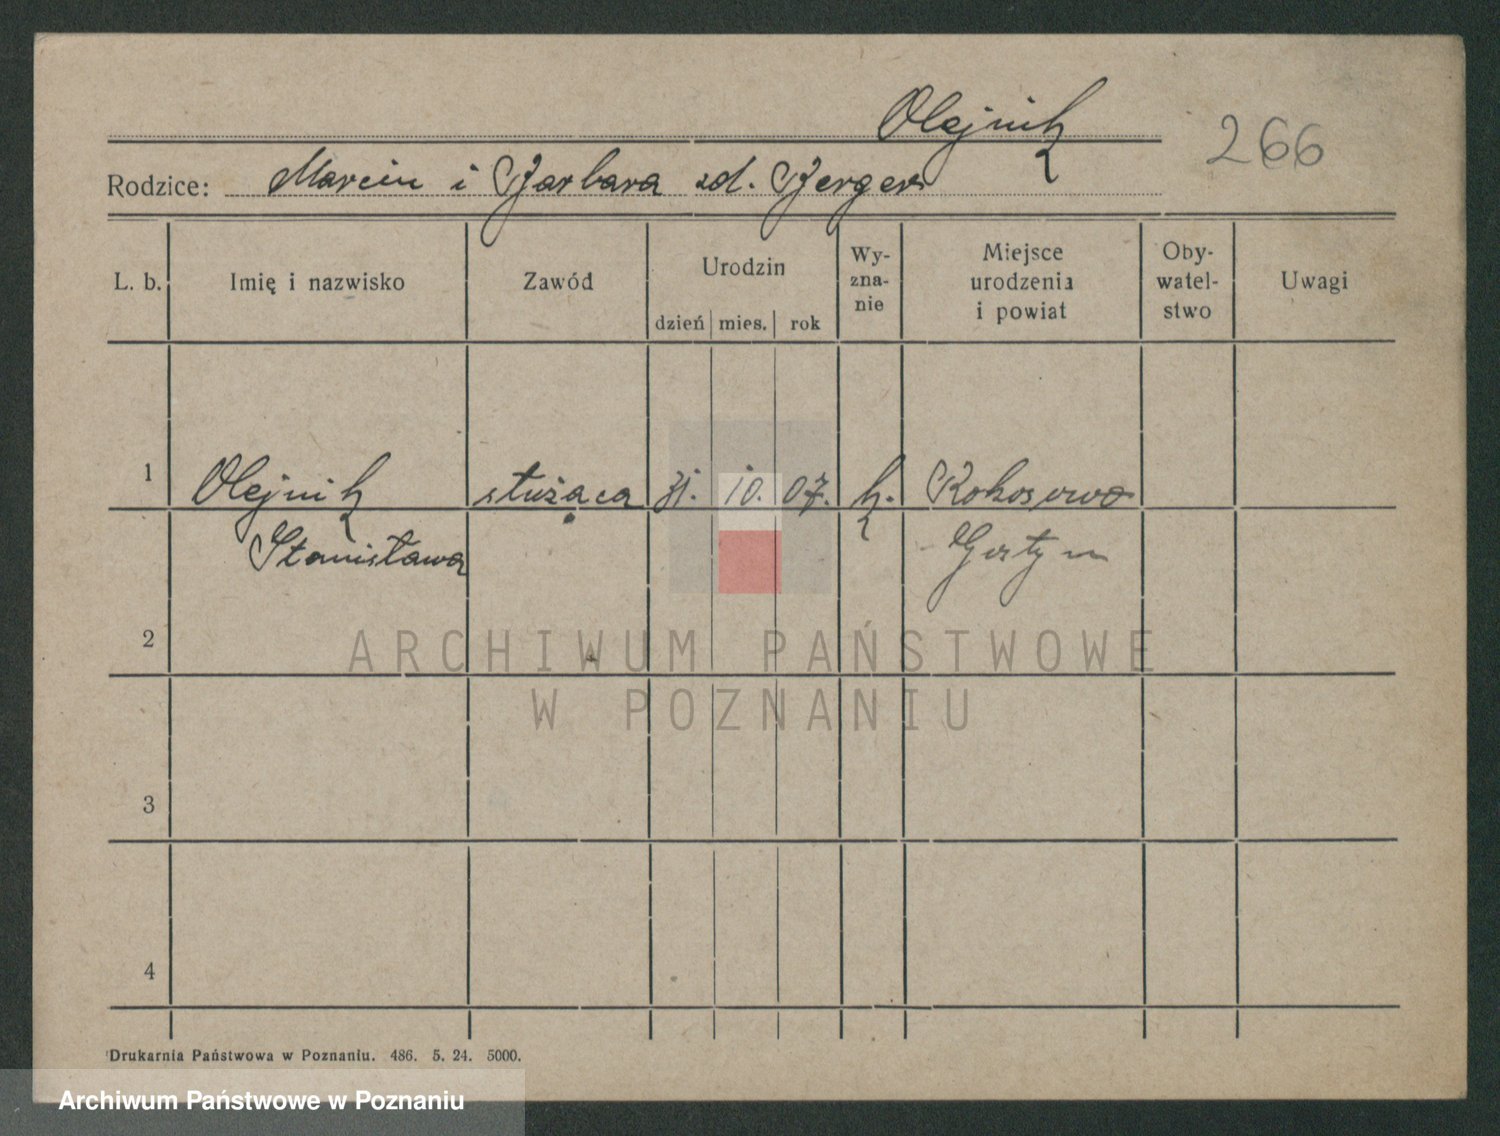 Olejnik
266
Rodzice: Marcin i Barbara zd. Berger
L. b. Imię i nazwisko Zawód Urodzin dzień mies. rok Wy-zna-nie Miejsce urodzenia i powiat Oby-watel-stwo Uwagi
1 Olejnik służąca 31. 10. 07. k. Kokosowo
Stanisława Gostyn
2
ARCHIWUM PAŃSTWOWE
W POZNANIU
3
4
Drukarnia Państwowa w Poznaniu. 486. 5. 24. 5000.
Archiwum Państwowe w Poznaniu